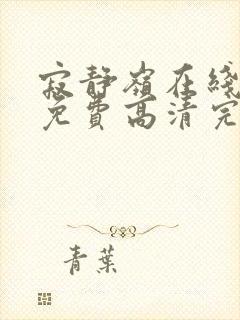 寂静嶺在綫
免費高清完
青葉